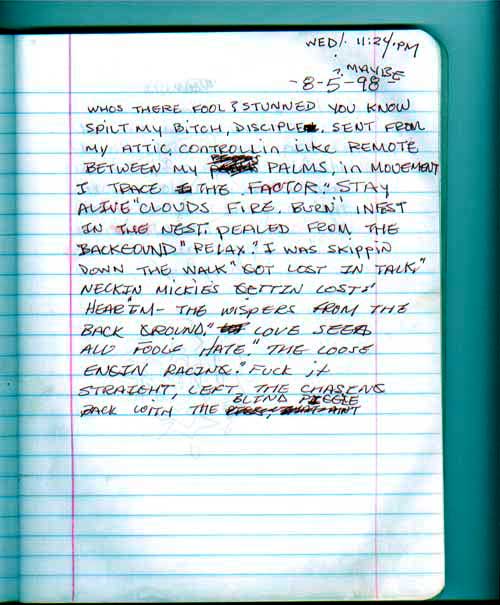 WED/. 11:24.PM
? MAYBE
-8-5-98-
WHOS THERE FOOL? STUNNED YOU KNOW
SPILT MY BITCH, DISCIPLE, SENT FROM
MY ATTIC, CONTROLLin Like REMOTE
BETWEEN MY PALMS, in MOVEMENT
I TRACE THE FACTOR." STAY
ALIVE "CLOUDS FIRE, BURN" INFEST
IN THE NEST, PEALED FROM THE
"BACKEOUND" RELAX". I WAS SKIPPIN
DOWN THE WALK "GOT LOST IN TALK,"
NECKIN MICKIES GETTIN LOST"
HEAR'EM- THE WISPERS FROM THE
BACK GROUND," LOVE SEES
ALL FOOLS HATE." THE LOOSE
ENGIN RACING." FUCK it
STRAIGHT, LEFT THE CHASING
BACK WITH THE BLIND